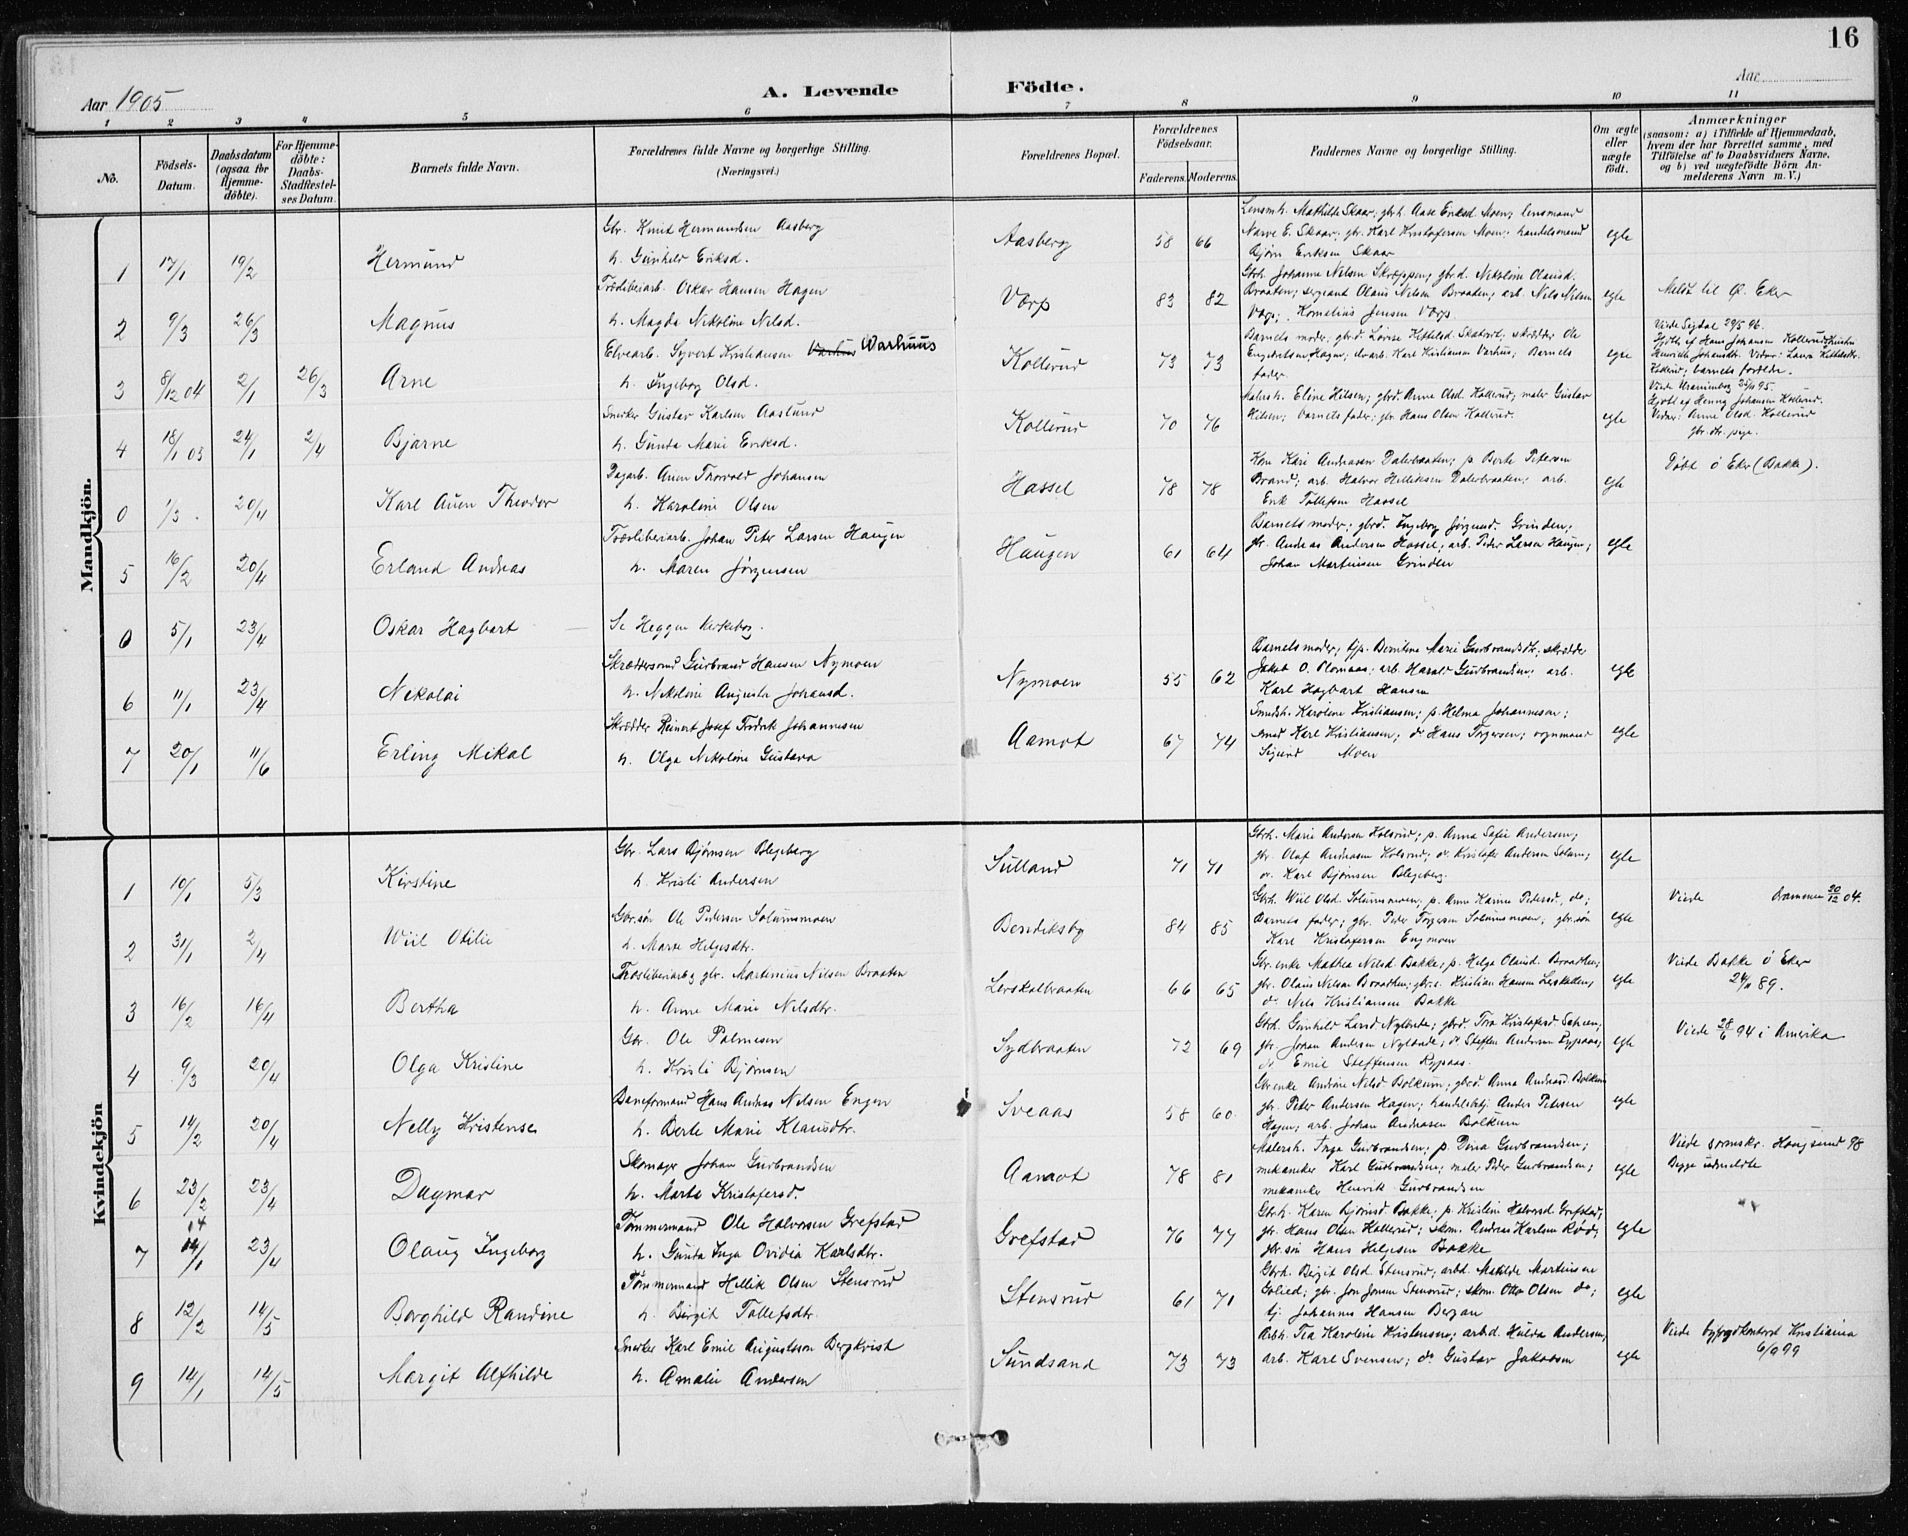 16
Aar 1905
A. Levende Födte.
Aar
1 2 3 4 5 6 7 8 9 10 11
No.
Födsels-Datum.
Daabsdatum (ogsaa for Hjemmedöbte).
For Hjemmedöbte: Daabs-Stadfæstelses Datum.
Barnets fulde Navn.
Forældrenes fulde Navne og borgerlige Stilling. (Næringsvei.)
Forældrenes Bopæl.
Forældrenes Födselsaar.
Faderens. Moderens.
Faddernes Navne og borgerlige Stilling.
Om ægte eller uægte födt.
Anmærkninger
(saasom: a) i Tilfælde af Hjemmedaab, hvem der har forrettet samme, med Tilföielse af to Daabsvidners Navne, og b) ved uegtefödte Börn Anmelderens Navn m. V.)
Mandkjön.
1 17/1 19/2 Hermund
Gbr. Knut Hermundsen Aasberg
h. Gunhild Eriksd.
Aasberg 58 66
Lensmh. Mathilde Skaar; gbrh. Aase Eriksd. Moen; lensmand
Narve E. Skaar; gbr. Karl Kristofersen Moen; handelsmand
Bjørn Eriksen Skaar
egte
2 9/3 26/3 Magnus
Træsliberiarb. Oskar Hansen Hagen
h. Magda Nikoline Nilsd.
Værp 83 82
Gbrh. Johanne Nilsen Skreppen; gbrd. Nikoline Olausd.
Braaten; sergeant Olaus Nilsen Braaten; arb. Nils Nilsen
Værp; Kornelius Jensen Værp
egte
Meldt til Ø. Eker
3 8/12 04 2/1 26/3 Arne
Elvearb. Syvert Kristiansen Varhus Warhuus
h. Ingeborg Olsd.
Kollerud 73 73
Barnets moder; gbrd. Lovise Kittelsd. Skatvet; skrædder Ole
Engebretsen Hagen; elvarb. Karl Kristiansen Varhus; Barnets
fader
egte
Viede Sigdal 29/5 96.
Hjdbt af Hans Johansen Kollerud,
Henriette Johansdtr. Vidner: Laura Kittelsdtr.
Kollerud; barnets forældre.
4 18/1 05 24/1 2/4 Bjarne
Snerker Gustav Karlsen Aaslund
h. Gunda Marie Eriksd.
Kollerud 70 76
Malersh. Eline Hilsen; gbrd. Anne Olsd. Kollerud; maler Gustav
Hilsen; barnets fader; gbr. Hans Olsen Kollerud.
egte
Viede Uranienborg 95.
Hjdbt af Henny Johansen Kollerud.
Vidner: Anne Olsd. Kollerud
gbr. dtr. pige.
0 1/3 20/4 Karl Auen Theodor
Dagarb. Auen Thorvald Johansen
h. Karoline Olsen
Hassel 78 78
Kone Kari Andreasen Dalerbraaten; p. Berte Petersen
Brand; arb. Halvor Helliksen Dalerbraaten; arb.
Erik Tollefsen Hassel
egte
Døbt ø Eker (Bakke).
5 16/2 20/4 Erland Andreas
Træsliberiarb. Johan Peter Larsen Haugen
h. Maren Jørgensen
Haugen 61 64
Barnets moder; gbrd. Ingeborg Jørgensd. Grinden;
gbr. Andreas Andersen Hassel; arb. Peder Larsen Haugen;
Johan Martinsen Grinden
egte
0 5/1 23/4 Oskar Hagbart
Se Heggen Kirkebog.
6 11/1 23/4 Nikolai
Skræddersvend Gudbrand Hansen Nymoen
h. Nikoline Augusta Johansd.
Nymoen 55 62
Barnets moder; tjp. Berntine Marie Gudbrandsdtr; skrædder
Jakob O. Plomaas; arb. Harald Gudbrandsen; arb.
Karl Hagbart Hansen
egte
7 20/1 11/6 Erling Mikal
Skrædder Reinert Josef Fredrik Johannesen
h. Olga Nikoline Gustava
Aamot 67 74
Smedh. Karoline Kristiansen; p. Helma Johannesen;
smed Karl Kristiansen; do Hans Torgersen; vognmand
Sigurd Moen
egte
Kvindekjön
1 10/1 5/3 Kirstine
Gbr. Lars Bjørnsen Blegeberg
h. Kristi Andersen
Sulland 71 71
Gbrh. Marie Andersen Holsrud; p. Anna Sofie Andersen;
gbr. Olaf Andreasen Holsrud; do. Kristofer Andersen Solum;
do. Karl Bjørnsen Blegeberg.
egte
2 31/1 2/4 Wiil Otilie
Gbr.søn Ole Pedersen Solumsmoen
h. Marte Helgesdtr.
Bendiksby 84 85
Gbrh. Wiil Olsd. Solumsmoen; p. Anne Karine Pedersd, do;
Barnets fader; gbr. Peder Torgersen Solumsmoen; gbr.søn
Karl Kristofersen Engmoen
egte
Viede Drammen 20/12 04.
3 16/2 16/4 Bertha
Træsliberiarb. & gbr. Martinius Nilsen Braaten
h. Anne Marie Nilsdtr.
Lerskalbraaten 66 65
Gbr.enke Mathea Nilsd. Bakke; p. Helga Olausd. Braathen;
gbr. Olaus Nilsen Braathen; gbr.s. Kristian Hansen Lerskallen;
do. Nils Kristiansen Bakke
egte
Viede Bakke ø Eker
24/11 89.
4 9/3 20/4 Olga Kristine
Gbr. Ole Palmesen
h. Kristi Bjørnsen
Sydbraaten 72 69
Gbrh. Gunhild Larsd Nylænde; gbrd. Tora Kristofersd.
gbr. Johan Andersen Nylænde; do Steffen Andersen Rypaas;
do Emil Steffensen Rypaas.
egte
Viede 28/6 94 i Amerika
5 14/2 20/4 Nelly Kristense
Baneformand Hans Andreas Nilsen Engen
h. Berte Marie Klausdtr.
Sveaas 58 60
Gbr.enke Andrine Nilsd Bolkum; gbrd. Anna Andreasd. Bolkum
gbr. Peter Andersen Hagen; handelsbtj. Anders Petersen
Hagen; arb. Johan Andreasen Bolkum
egte
6 23/2 23/4 Dagmar
Skomager Johan Gudbrandsen
h. Marta Kristofersd.
Aamot 78 81
Malersh. Inga Gudbrandsen; p. Dina Gudbrandsen;
mekaniker Karl Gudbrandsen; maler Peder Gudbrandsen;
mekaniker Henrik Gudbrandsen
egte
Viede Haugsund 98
Begge udmeldte
7 14/1 23/4 Olaug Ingeborg
Tømmermand Ole Halvorsen Grefstad
h. Gunda Inga Ovidia Karlsdtr.
Grefstad 76 77
Gbrh. Karen Bjørnsd Bakke; p. Kristine Halvorsd. Grefstad;
gbr. Hans Olsen Kollerud; skom. Andreas Karlsen Rød;
gbr.søn Hans Helgesen Bakke
egte
8 12/2 14/5 Borghild Randine
Tømmermand Hellik Olsen Stensrud
h. Bergit Tollefsdtr.
Stensrud 61 71
Gbrh. Bergit Olsd. Stensrud; arbd. Matilde Martinsen
Golied; gbr. Jon Jonsen Stensrud; skom. Otto Olsen do;
tj. Johannes Hansen Bergan
egte
9 14/1 14/5 Margit Alfhilde
Snerker Karl Emil Augustsson Bergkvist
h. Amalie Andersen
Sundsand 73 73
Arbh. Tea Karoline Kristensen; arbd. Hulda Andersen;
arb. Karl Svensen; do Gustav Jakobsen
egte
Viede byfogdkontoret Kristiania
6/9 99